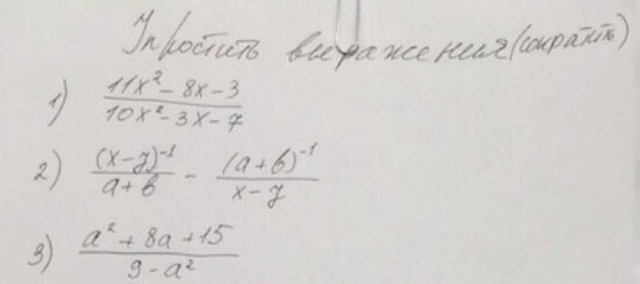 Упростить выражения (сократить)
1) \frac{11x^2 - 8x - 3}{10x^2 - 3x - 7}
2) \frac{(x-y)^{-1}}{a+b} - \frac{(a+b)^{-1}}{x-y}
3) \frac{a^2 + 8a + 15}{9 - a^2}